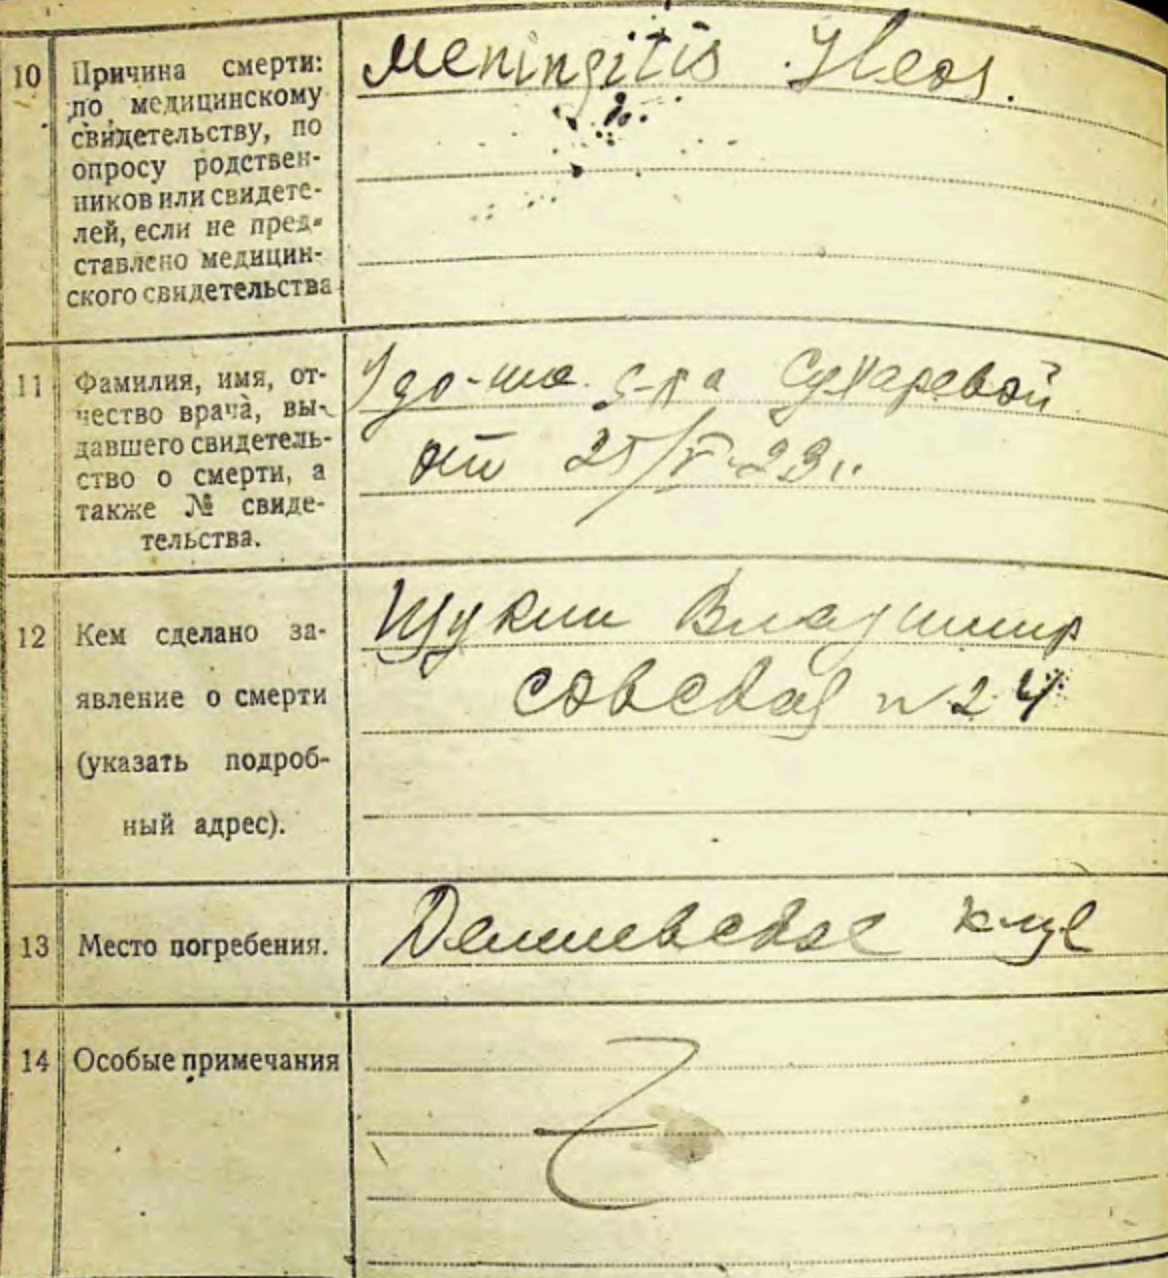 10 Причина смерти:
по медицинскому
свидетельству, по
опросу родствен-
ников или свидете-
лей, если не пред-
ставлено медицин-
ского свидетельства
Meningitis
11 Фамилия, имя, от-
чество врача, вы-
давшего свидетель-
ство о смерти, а
также № свиде-
тельства.
Сухаревой
от 25/V-23г.
12 Кем сделано за-
явление о смерти
(указать подроб-
ный адрес).
Щукин Владимир
24
13 Место погребения.
14 Особые примечания